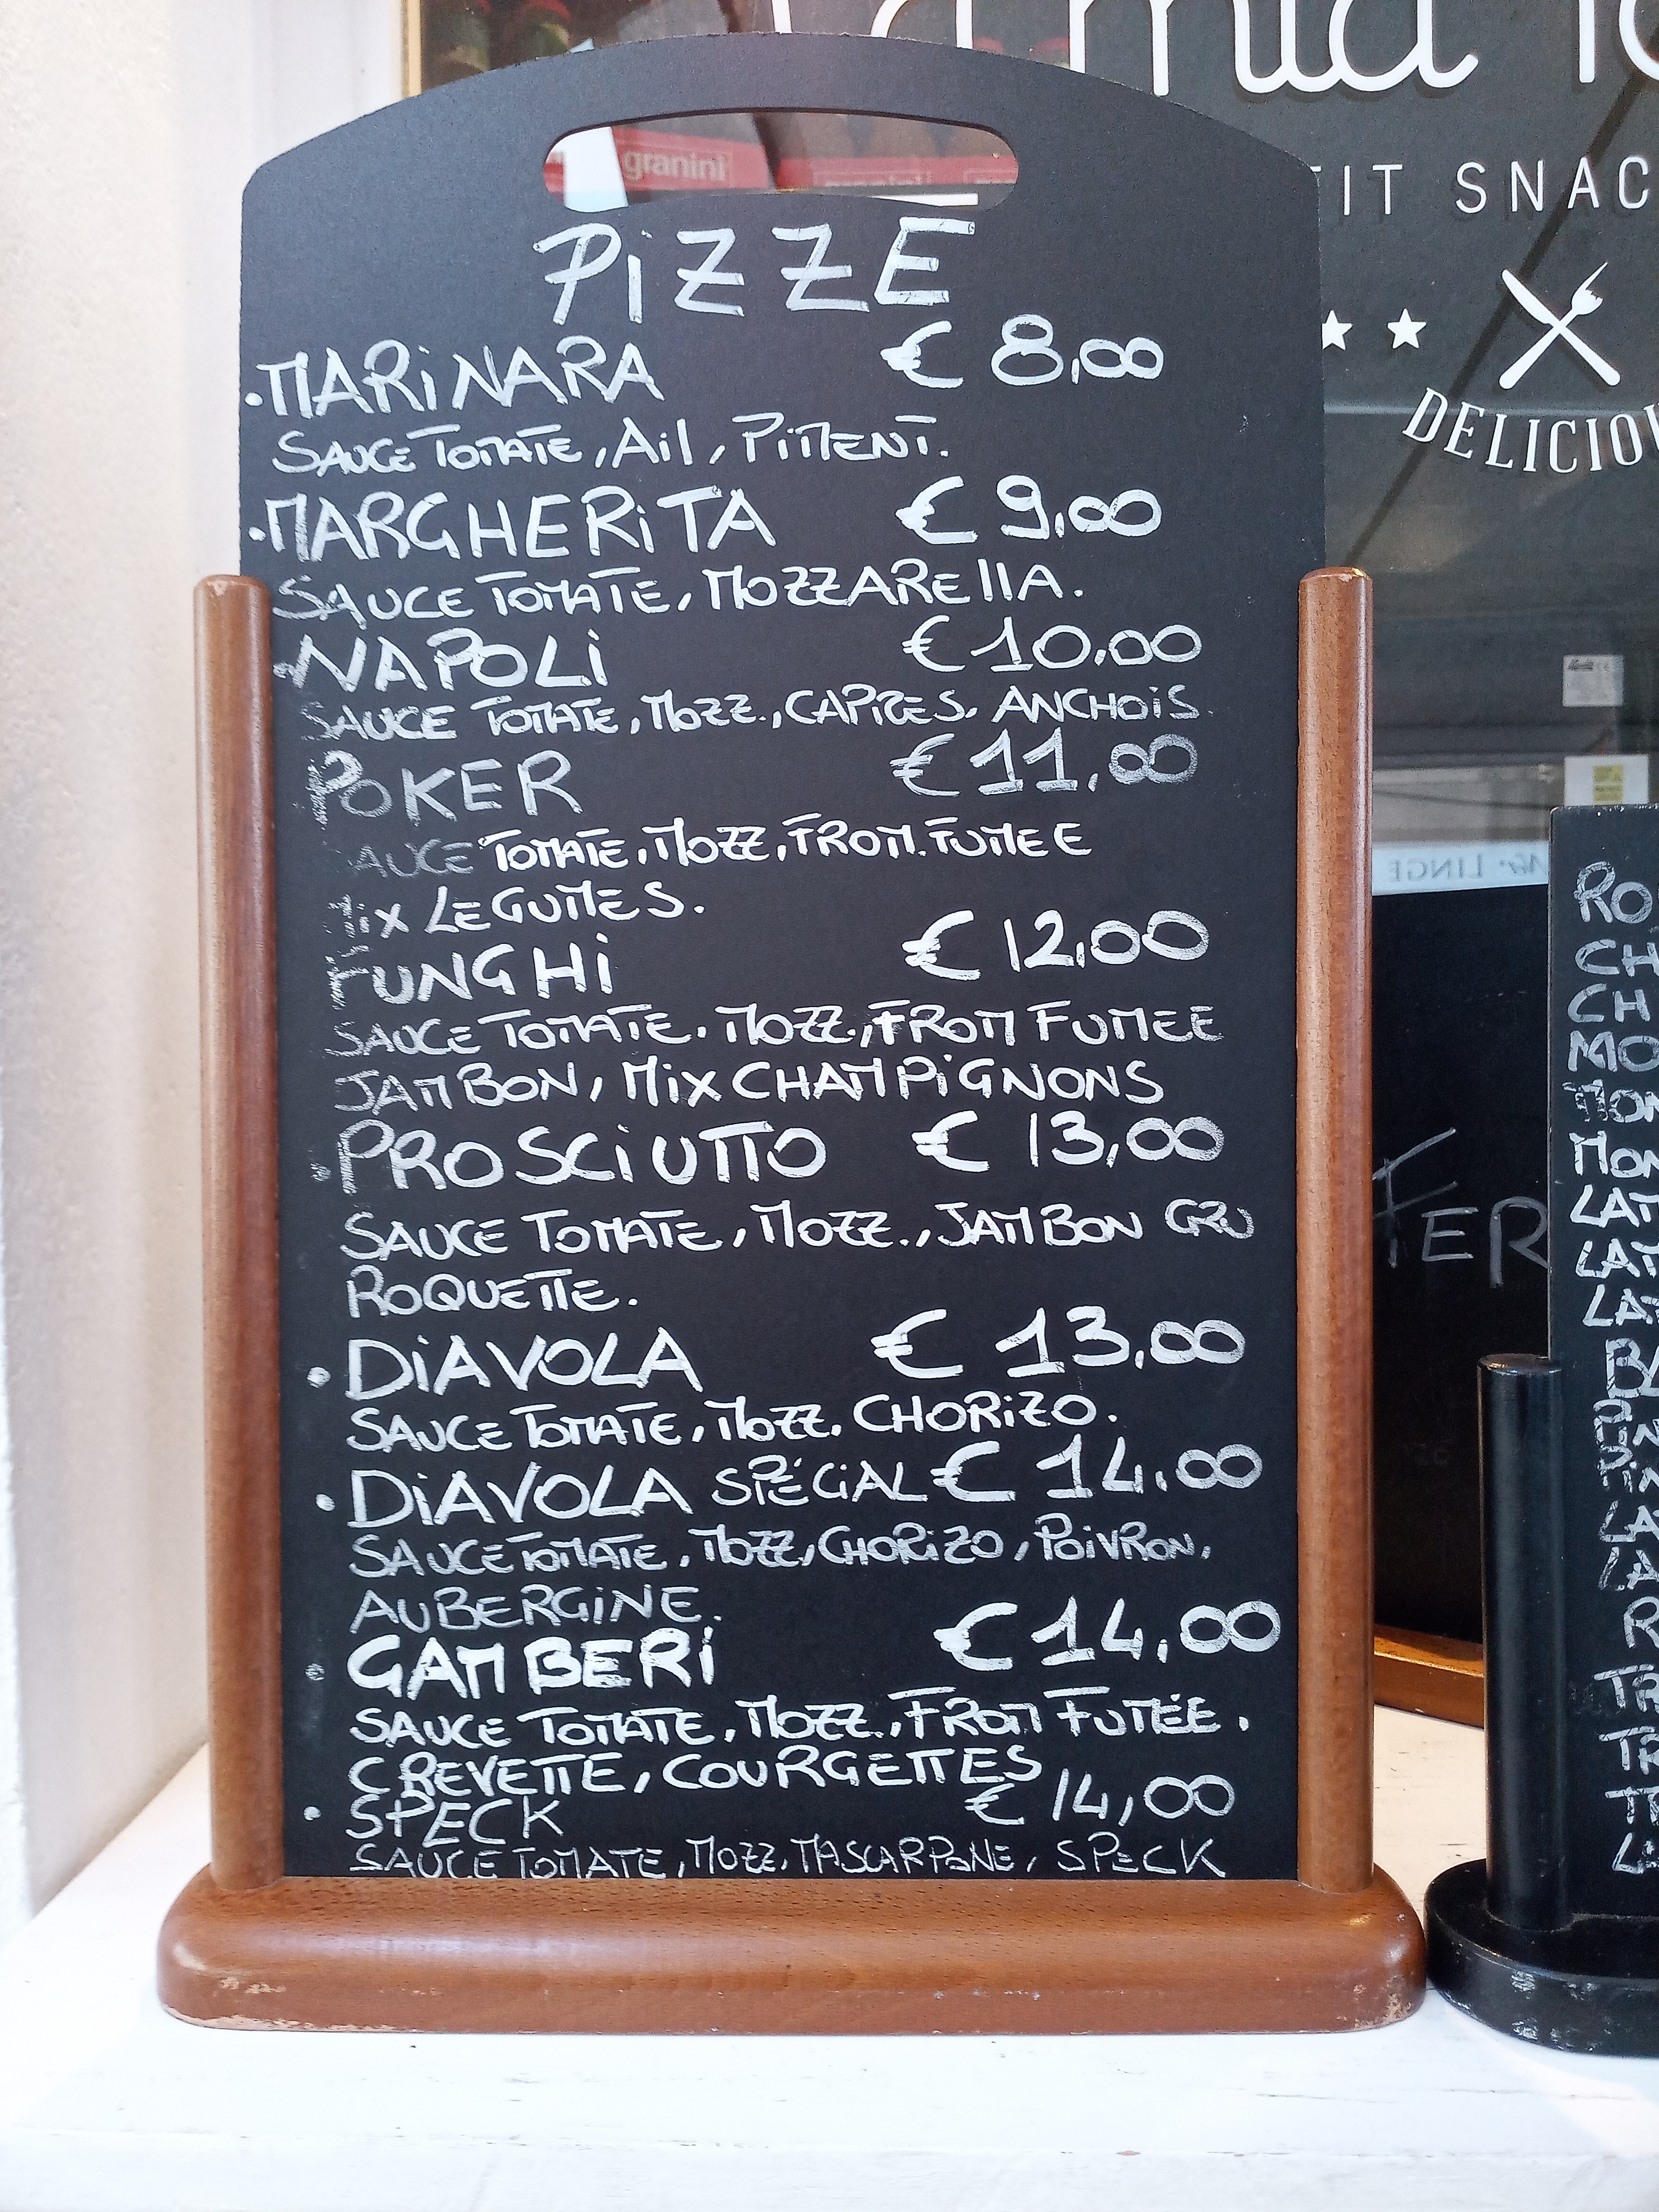 granini
PiZZE
.MARiNARA € 8,00
SAUCE TOMATE, Ail, PiMENT.
.MARGHERiTA € 9,00
SAUCE TOMATE, MOZZAREllA.
NAPOLi € 10,00
SAUCE TOMATE, MOZZ., CAPRES, ANCHOiS
POKER € 11,00
SAUCE TOMATE, MOZZ, FROM. FUMEE
Mix LEGUMES.
FUNGHi € 12,00
SAUCE TOMATE. MOZZ., FROM FUMEE
JAMBON, MiX CHAMPiGNONS
. PROSCiUTTO € 13,00
SAUCE TOMATE, MOZZ., JAMBON CRU
ROQUETTE.
. DiAVOLA € 13,00
SAUCE TOMATE, MOZZ, CHORiZO.
. DiAVOLA SPÉCiAL € 14,00
SAUCE TOMATE, MOZZ, CHORiZO, POiVRON,
AUBERGiNE.
. GAMBERi € 14,00
SAUCE TOMATE, MOZZ., FROM FUMÉE.
CREVETTE, COURGETTES
. SPECK € 14,00
SAUCE TOMATE, MOZZ, MASCARPONE, SPECK
mia
FIT SNAC
DELICIOU
LINGE
FER
RO
CH
CH
MO
MON
MON
LAT
LAT
LAT
BA
PiN
PiN
LA
LA
R
TR
TR
TR